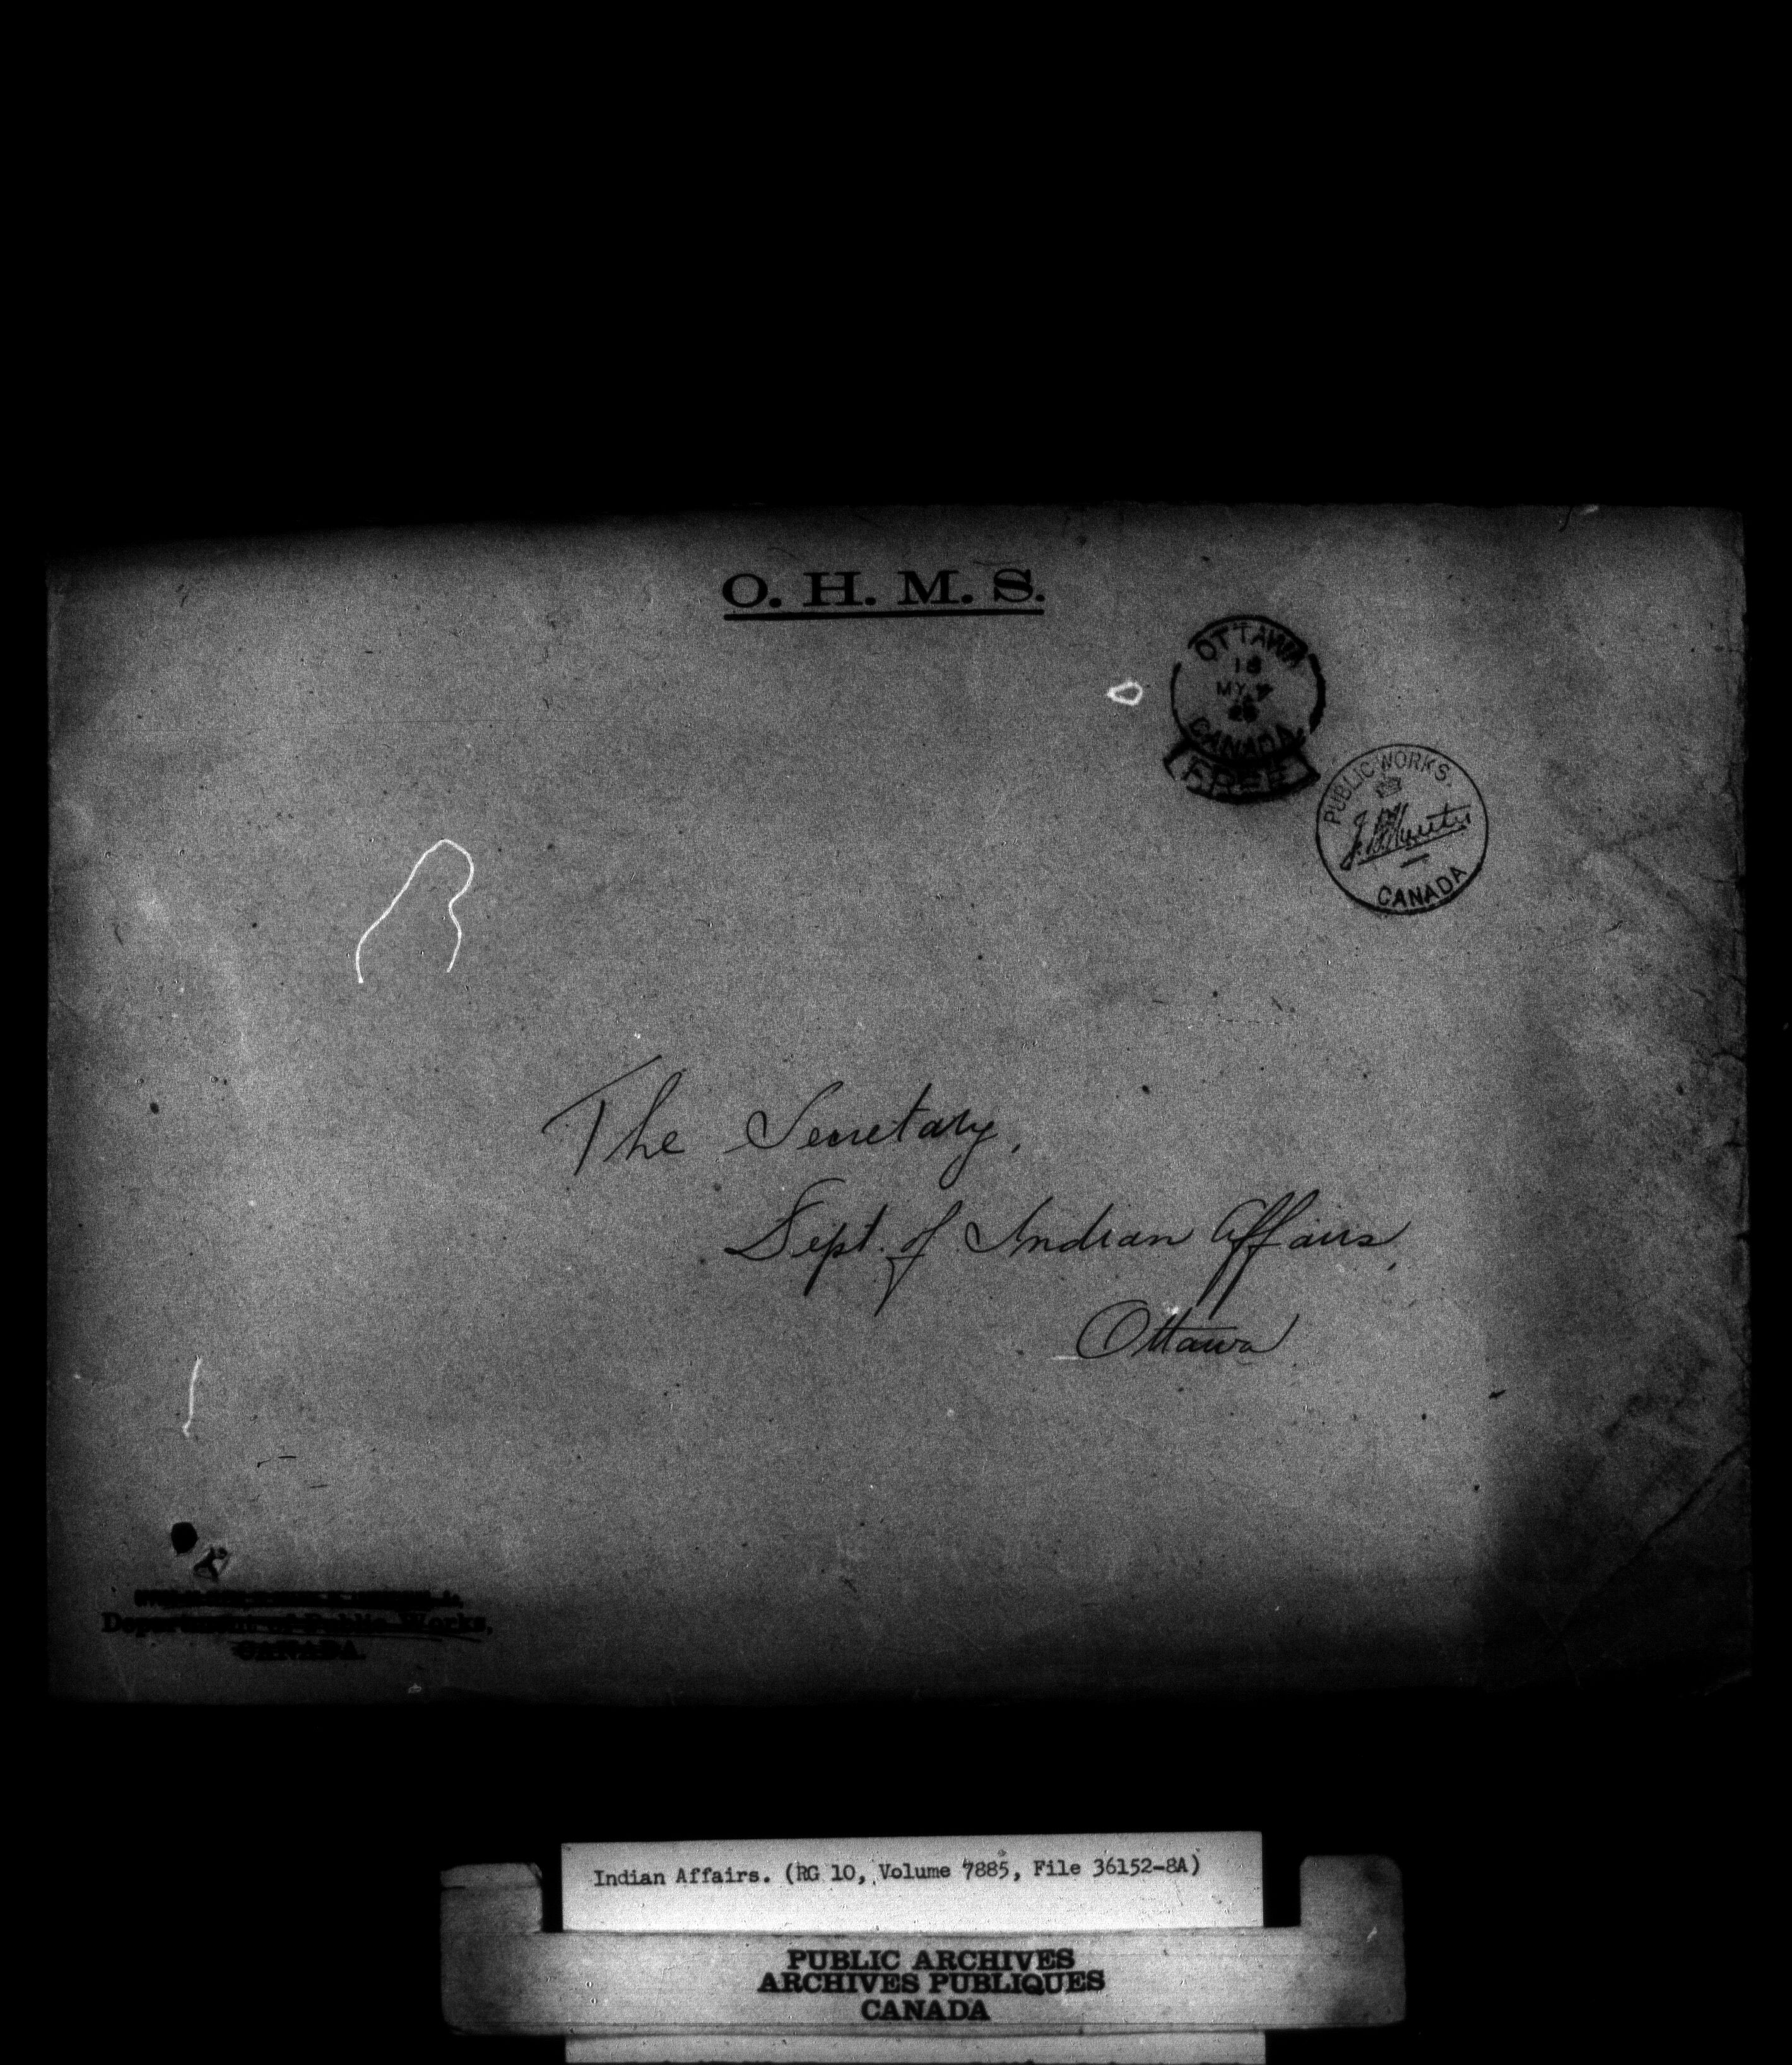 O. H. M. S.
OTTAWA
18
MY
CANADA
FREE
PUBLIC WORKS,
CANADA
The Secretary,
Dept. of Indian Affairs,
Ottawa
Department of Public Works,
CANADA.
Indian Affairs. (RG 10, Volume 7885, File 36152-8A)
PUBLIC ARCHIVES
ARCHIVES PUBLIQUES
CANADA